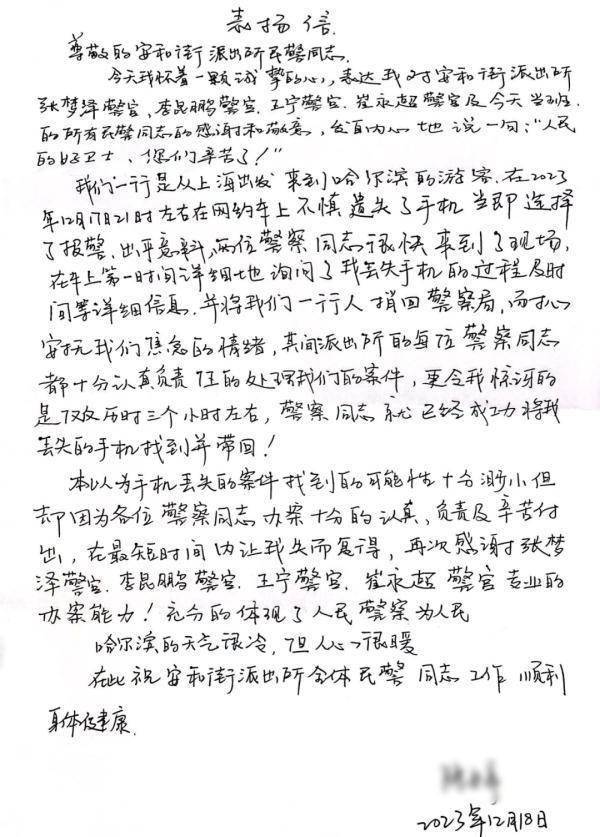 表扬信.
尊敬的安和街派出所民警同志.
今天我怀着一颗诚挚的心,表达我对安和街派出所
张梦泽警官,李昆鹏警官.王宁警官.崔永超警官及今天当班
的所有民警同志的感谢和敬意,发自内心地说一句:"人民
的好卫士,您们辛苦了!"
我们一行是从上海出发来到哈尔滨的游客.在2023
年12月17日21时左右在网约车上不慎遗失了手机当即选择
了报警.出乎意料,两位警察同志很快来到了现场,
在车上第一时间详细地询问了我丢失手机的过程及时
间等详细信息.并将我们一行人捎回警察局,耐心
安抚我们焦急的情绪,其间派出所的每位警察同志
都十分认真负责任的处理我们的案件,更令我惊讶的
是仅仅历时三个小时左右,警察同志就已经成功将我
丢失的手机找到并带回!
本以为手机丢失的案件找到的可能性十分渺小但
却因为各位警察同志办案十分的认真,负责及辛苦付
出,在最短时间内让我失而复得,再次感谢张梦
泽警官.李昆鹏警官.王宁警官.崔永超警官专业的
办案能力!充分的体现了人民警察为人民
哈尔滨的天气很冷,但人心很暖
在此祝安和街派出所全体民警同志工作顺利
身体健康.
2023年12月18日